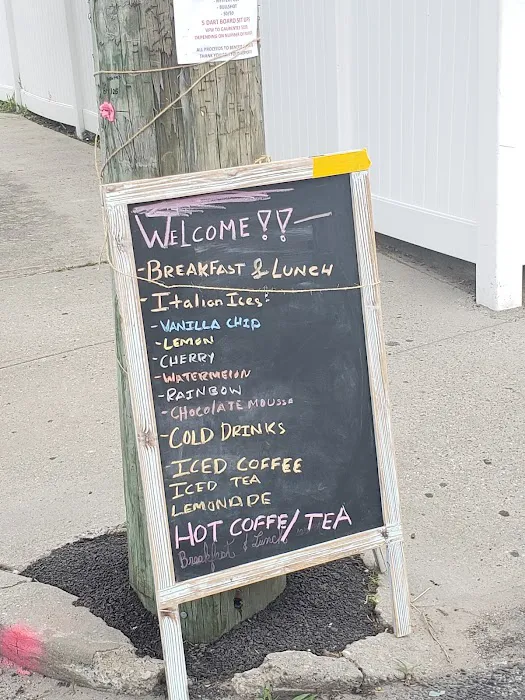 WELCOME!!—
-BREAKFAST & LUNCH
-Italian Ices:
-VANILLA CHIP
-LEMON
-CHERRY
-WATERMELON
-RAINBOW
-CHOCOLATE MOUSSE
-COLD DRINKS
ICED COFFEE
ICED TEA
LEMONADE
HOT COFFE/TEA
Breakfast & Lunch